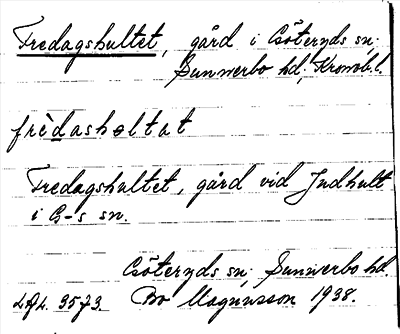 Fredagshultet, gård i Göteryds sn;
Sunnerbo hd; Kronob.l.
frèdashəltat
Fredagshultet, gård vid Judhult
i G-s sn.
Göteryds sn; Sunnerbo hd.
LAL. 3573. Bo Magnusson 1938.